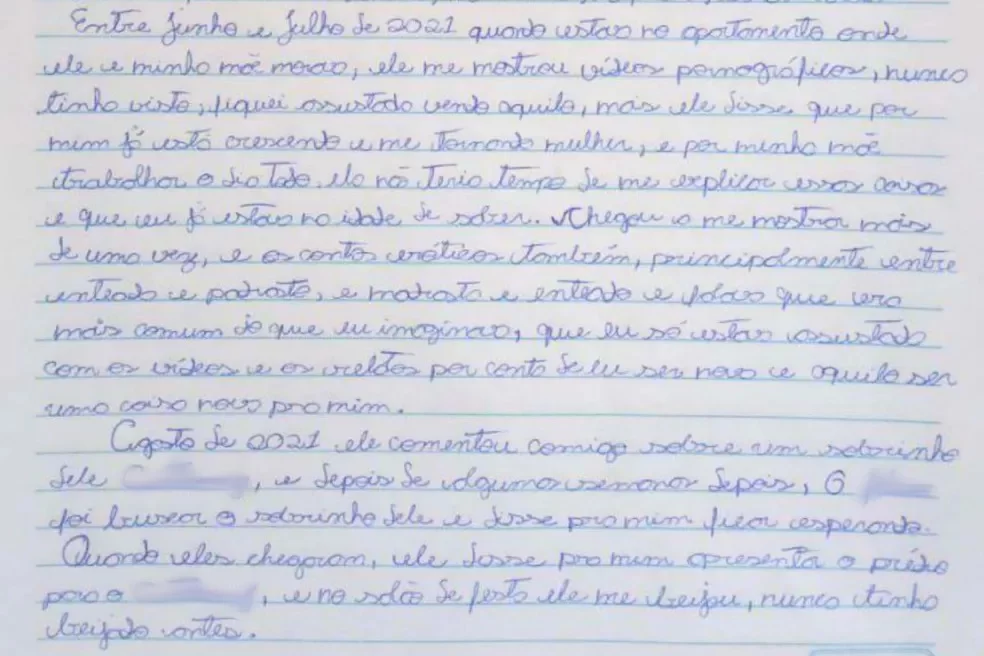 Entre junho e julho de 2021 quando estav no apartamento onde
ele e minha mãe morav, ele me mostrou vídeos pornográficos, nunca
tinha visto, fiquei assustada vendo aquilo, mas ele disse que por
mim já está crescendo e me tornando mulher, e por minha mãe
trabalhar o dia todo. Ela não teria tempo de me explicar essas coisas
e que eu já estava na idade de saber. Chegou a me mostrar mais
de uma vez, e os contos eróticos também, principalmente entre
enteada e padrasto, e madrasta e enteado e falava que era
mais comum do que eu imaginava, que eu só estav assustada
com os vídeos e os relatos por conta de eu ser nova e aquilo ser
uma coisa nova pra mim.
Agosto de 2021 ele comentou comigo sobre um sobrinho
dele , e depois de algumas semanas depois, O
foi buscar o sobrinho dele e disse pra mim ficar esperando.
Quando eles chegaram, ele disse pra mim apresenta o prédio
para o , e no salão de festa ele me beijou, nunca tinha
beijado antes.